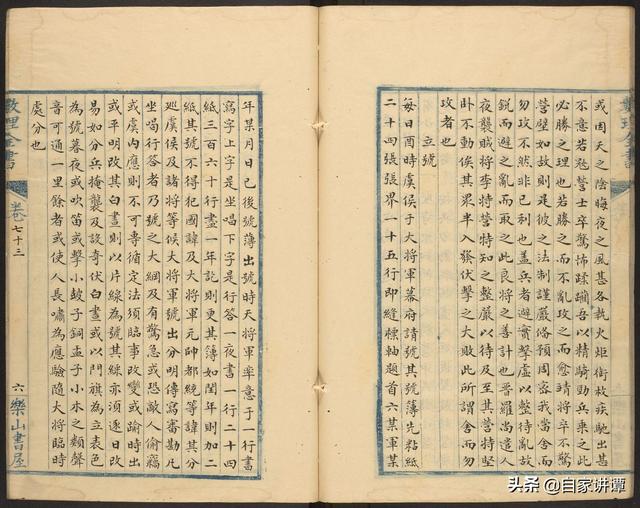 數理全書
或因天之陰晦夜之風甚各執火炬銜枚疾馳出甚
不意若愁誓士卒驚怖蹂躪吾以精騎勁兵乘之此
必勝之理也若勝之而不亂攻之而愈請將卒不驚
營壁如故則是彼之法制謹嚴修預周密我當舍而
勿攻不然非已到也蓋兵者避實擊虛以整待亂故
銳而避之亂而取之此良將之善計也晉羅尚遣人
夜襲賊將李特營特知之整嚴以待及至其營特堅
卧不動俟其眾半入發伏擊之大敗此所謂舍而勿
攻者也
立號
每日酉時虞侯于大將軍幕府請號其號簿先粘紙
二十四張張界一十五行即縫標軸題首六某軍某
年某月日已後號簿出號時天將軍率意于一行書
寫字上字是坐喝下字是行答一夜書一行二十四
紙三百六十行盡一年訖則更其簿如閏年則加二
紙其號不得犯國諱及大將軍元帥都統等諱其分
巡虞侯及諸將等俟大將軍號出分明傳寫番勘凡
坐喝行答者乃號之大綱及有驚急或恐敵人偷竊
或虞內應則不可專循定法須臨事改變或踰時出
或平明改其白晝則以片線為號其線亦須逐日改
易如分兵掩襲及設奇伏白晝或以門旗為立表色
為號暮夜或吹笛或擊小鼓子銅盂子小木之類聲
音可通一里餘者或使人長嘯為應驗隨大將臨時
處分也
數理全書
卷七十三
六
樂山書屋
头条 @自家讲谭